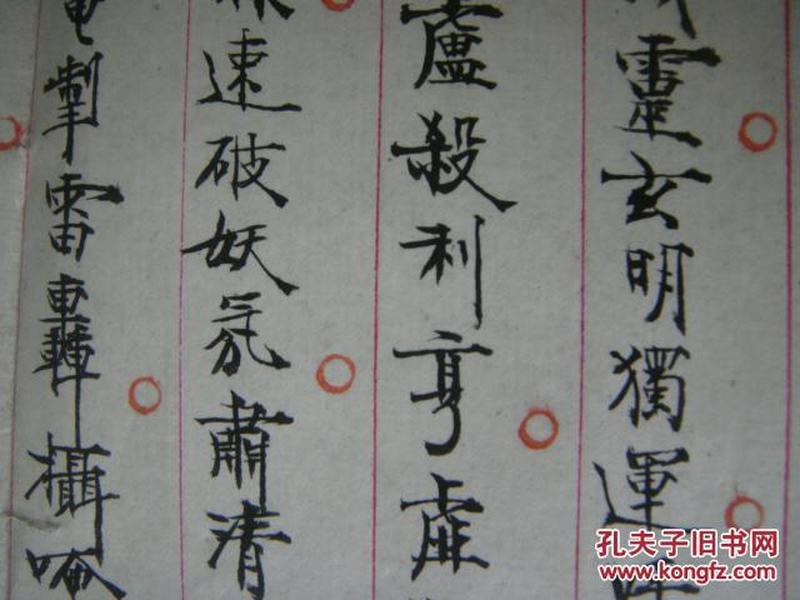 靈玄明獨運
盧殺利亨虛
速破妖氛肅清
掣雷轟攝
孔夫子旧书网
www.kongfz.com